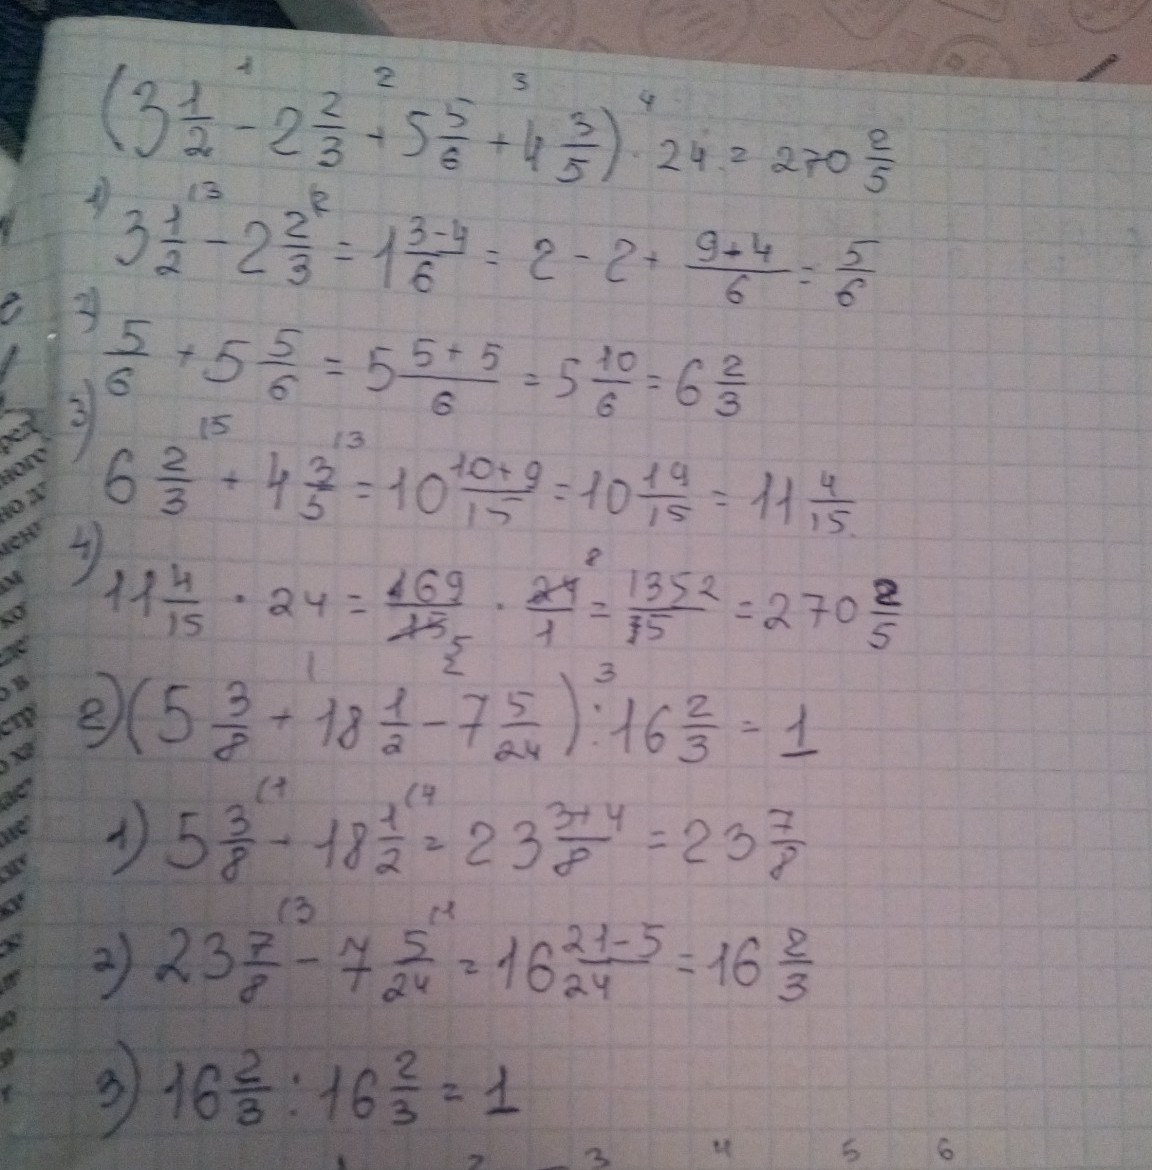 1 2 3 4
(3 1/2 - 2 2/3 + 5 5/6 + 4 3/5) · 24 = 270 2/5
1) 3 1/2 (3 - 2 2/3 (2 = 1 3-4/6 = 2 - 2 + 9+4/6 = 5/6
2) 5/6 + 5 5/6 = 5 5+5/6 = 5 10/6 = 6 2/3
3) 6 2/3 (5 + 4 3/5 (3 = 10 10+9/15 = 10 19/15 = 11 4/15
4) 11 4/15 · 24 = 169/15 5 · 24/1 8 = 1352/5 = 270 2/5
1 2 3
2) (5 3/8 + 18 1/2 - 7 5/24) : 16 2/3 = 1
1) 5 3/8 (1 + 18 1/2 (4 = 23 3+4/8 = 23 7/8
2) 23 7/8 (3 - 7 5/24 (1 = 16 21-5/24 = 16 2/3
3) 16 2/3 : 16 2/3 = 1
3 4 5 6